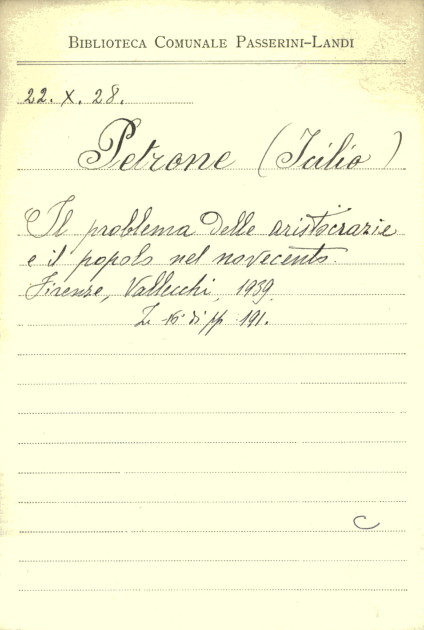 BIBLIOTECA COMUNALE PASSERINI-LANDI
22. X. 28.
Petrone (Icilio)
Il problema delle aristocrazie
e il popolo nel novecento.
Firenze, Vallecchi, 1939.
16° di pp. 191.
C